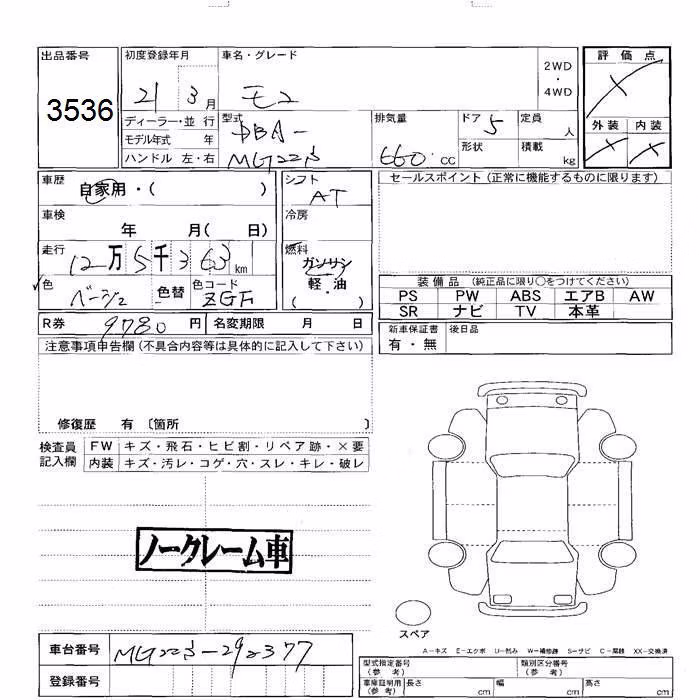 出品番号
3536
初度登録年月
21 3月
車名・グレード
モコ
2WD
・
4WD
評価点
ディーラー・並行
モデル年式 年
ハンドル 左・右
型式
DBA-
MG22S
排気量
660 cc
ドア 5
形状
定員 人
積載 kg
外装 内装
車歴 自家用・( )
車検 年 月( 日)
走行 12万5千363km
色 ベージュ 色替 色コード ZGF
シフト AT
冷房
燃料 ガソリン
軽・油
( )
セールスポイント(正常に機能するものに限ります)
装備品(純正品に限り○をつけてください)
PS PW ABS エアB AW
SR ナビ TV 本革
新車保証書 後日品
有・無
R券 9780 円 名変期限 月 日
注意事項申告欄(不具合内容等は具体的に記入して下さい)
修復歴 有 〔箇所 〕
検査員
記入欄
FW キズ・飛石・ヒビ割・リペア跡・×要
内装 キズ・汚レ・コゲ・穴・スレ・キレ・破レ
ノークレーム車
スペア
A-キズ E-エクボ U-凹み W-補修跡 S-サビ C-腐蝕 XX-交換済
車台番号 MG22S-292377
登録番号
型式指定番号
(参考)
類別区分番号
(参考)
車庫証明用
(参考)
長さ cm 幅 cm 高さ cm